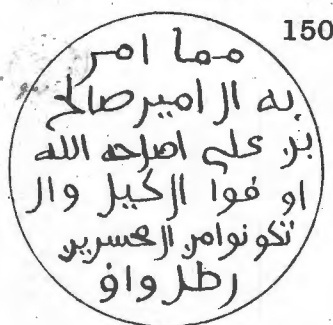 150
مما امر
به الامير صالح
بن علي اصلحه الله
اوفوا الكيل ولا
تكونوا من المخسرين
رطل واف